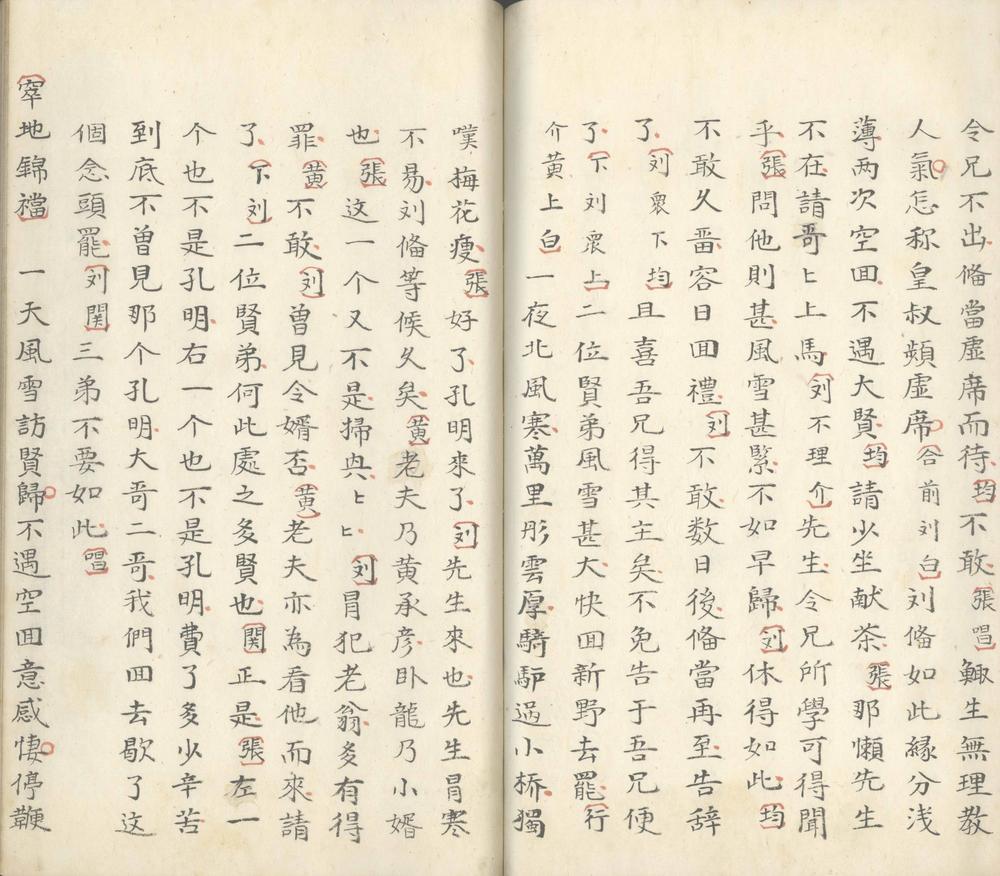 令兄不出俻當虛席而待均不敢張唱鯫生無理教
人氣怎称皇叔頻虛席合前刘白刘俻如此緣分浅
薄两次空囬不遇大賢均請少坐献茶張那懶先生
不在請哥匕上馬刘不理介先生令兄所學可得聞
乎張問他則甚風雪甚緊不如早歸刘休得如此均
不敢久畱容日囬禮刘不敢数日後俻當再至告辞
了刘衆下均且喜吾兄得其主矣不免告于吾兄便
了下刘衆上二位賢弟風雪甚大快囬新野去罷行
介黄上白一夜北風寒萬里彤雲厚騎馿過小桥獨
嘆梅花瘦張好了孔明來了刘先生來也先生冐寒
不易刘俻等候久矣黄老夫乃黄承彦卧龍乃小婿
也張这一个又不是掃㒷匕匕刘冐犯老翁多有得
罪黄不敢刘曽見令婿否黄老夫亦為看他而來請
了下刘二位賢弟何此處之多賢也関正是張左一
个也不是孔明右一个也不是孔明費了多少辛苦
到底不曽見那个孔明大哥二哥我們囬去歇了这
個念頭罷刘関三弟不要如此唱
窣地錦襠一天風雪訪賢歸不遇空囬意感悽停鞭